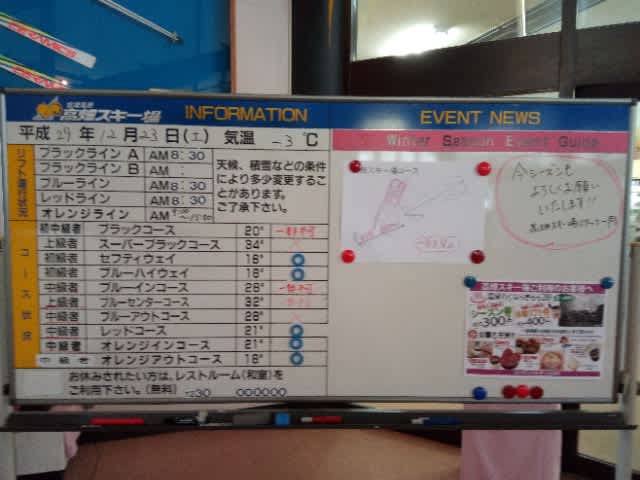 高畑スキー場 INFORMATION
平成 29年 12月 23日(土) 気温 -3℃
リフト運行状況
ブラックライン A AM 8:30
ブラックライン B AM :
ブルーライン AM 8:30
レッドライン AM 8:30
オレンジライン AM
天候、積雪などの条件
により多少変更するこ
とがあります。
ご了承下さい。
コース状況
初中級者 ブラックコース 20°
上級者 スーパーブラックコース 34°
初級者 セフティウェイ 16°
初級者 ブルーハイウェイ 18°
中級者 ブルーインコース 28°
上級者 ブルーセンターコース 32°
中級者 ブルーアウトコース 28°
中級者 レッドコース 21°
中級者 オレンジインコース 21°
中級者 オレンジアウトコース 18°
お休みされたい方は、レストルーム(和室)を
ご利用下さい。(無料)
EVENT NEWS
Winter Season Event Guide
スキー場コース
今シーズンも
よろしくお願い
いたします!!
高畑スキー場ご利用のお客様へ